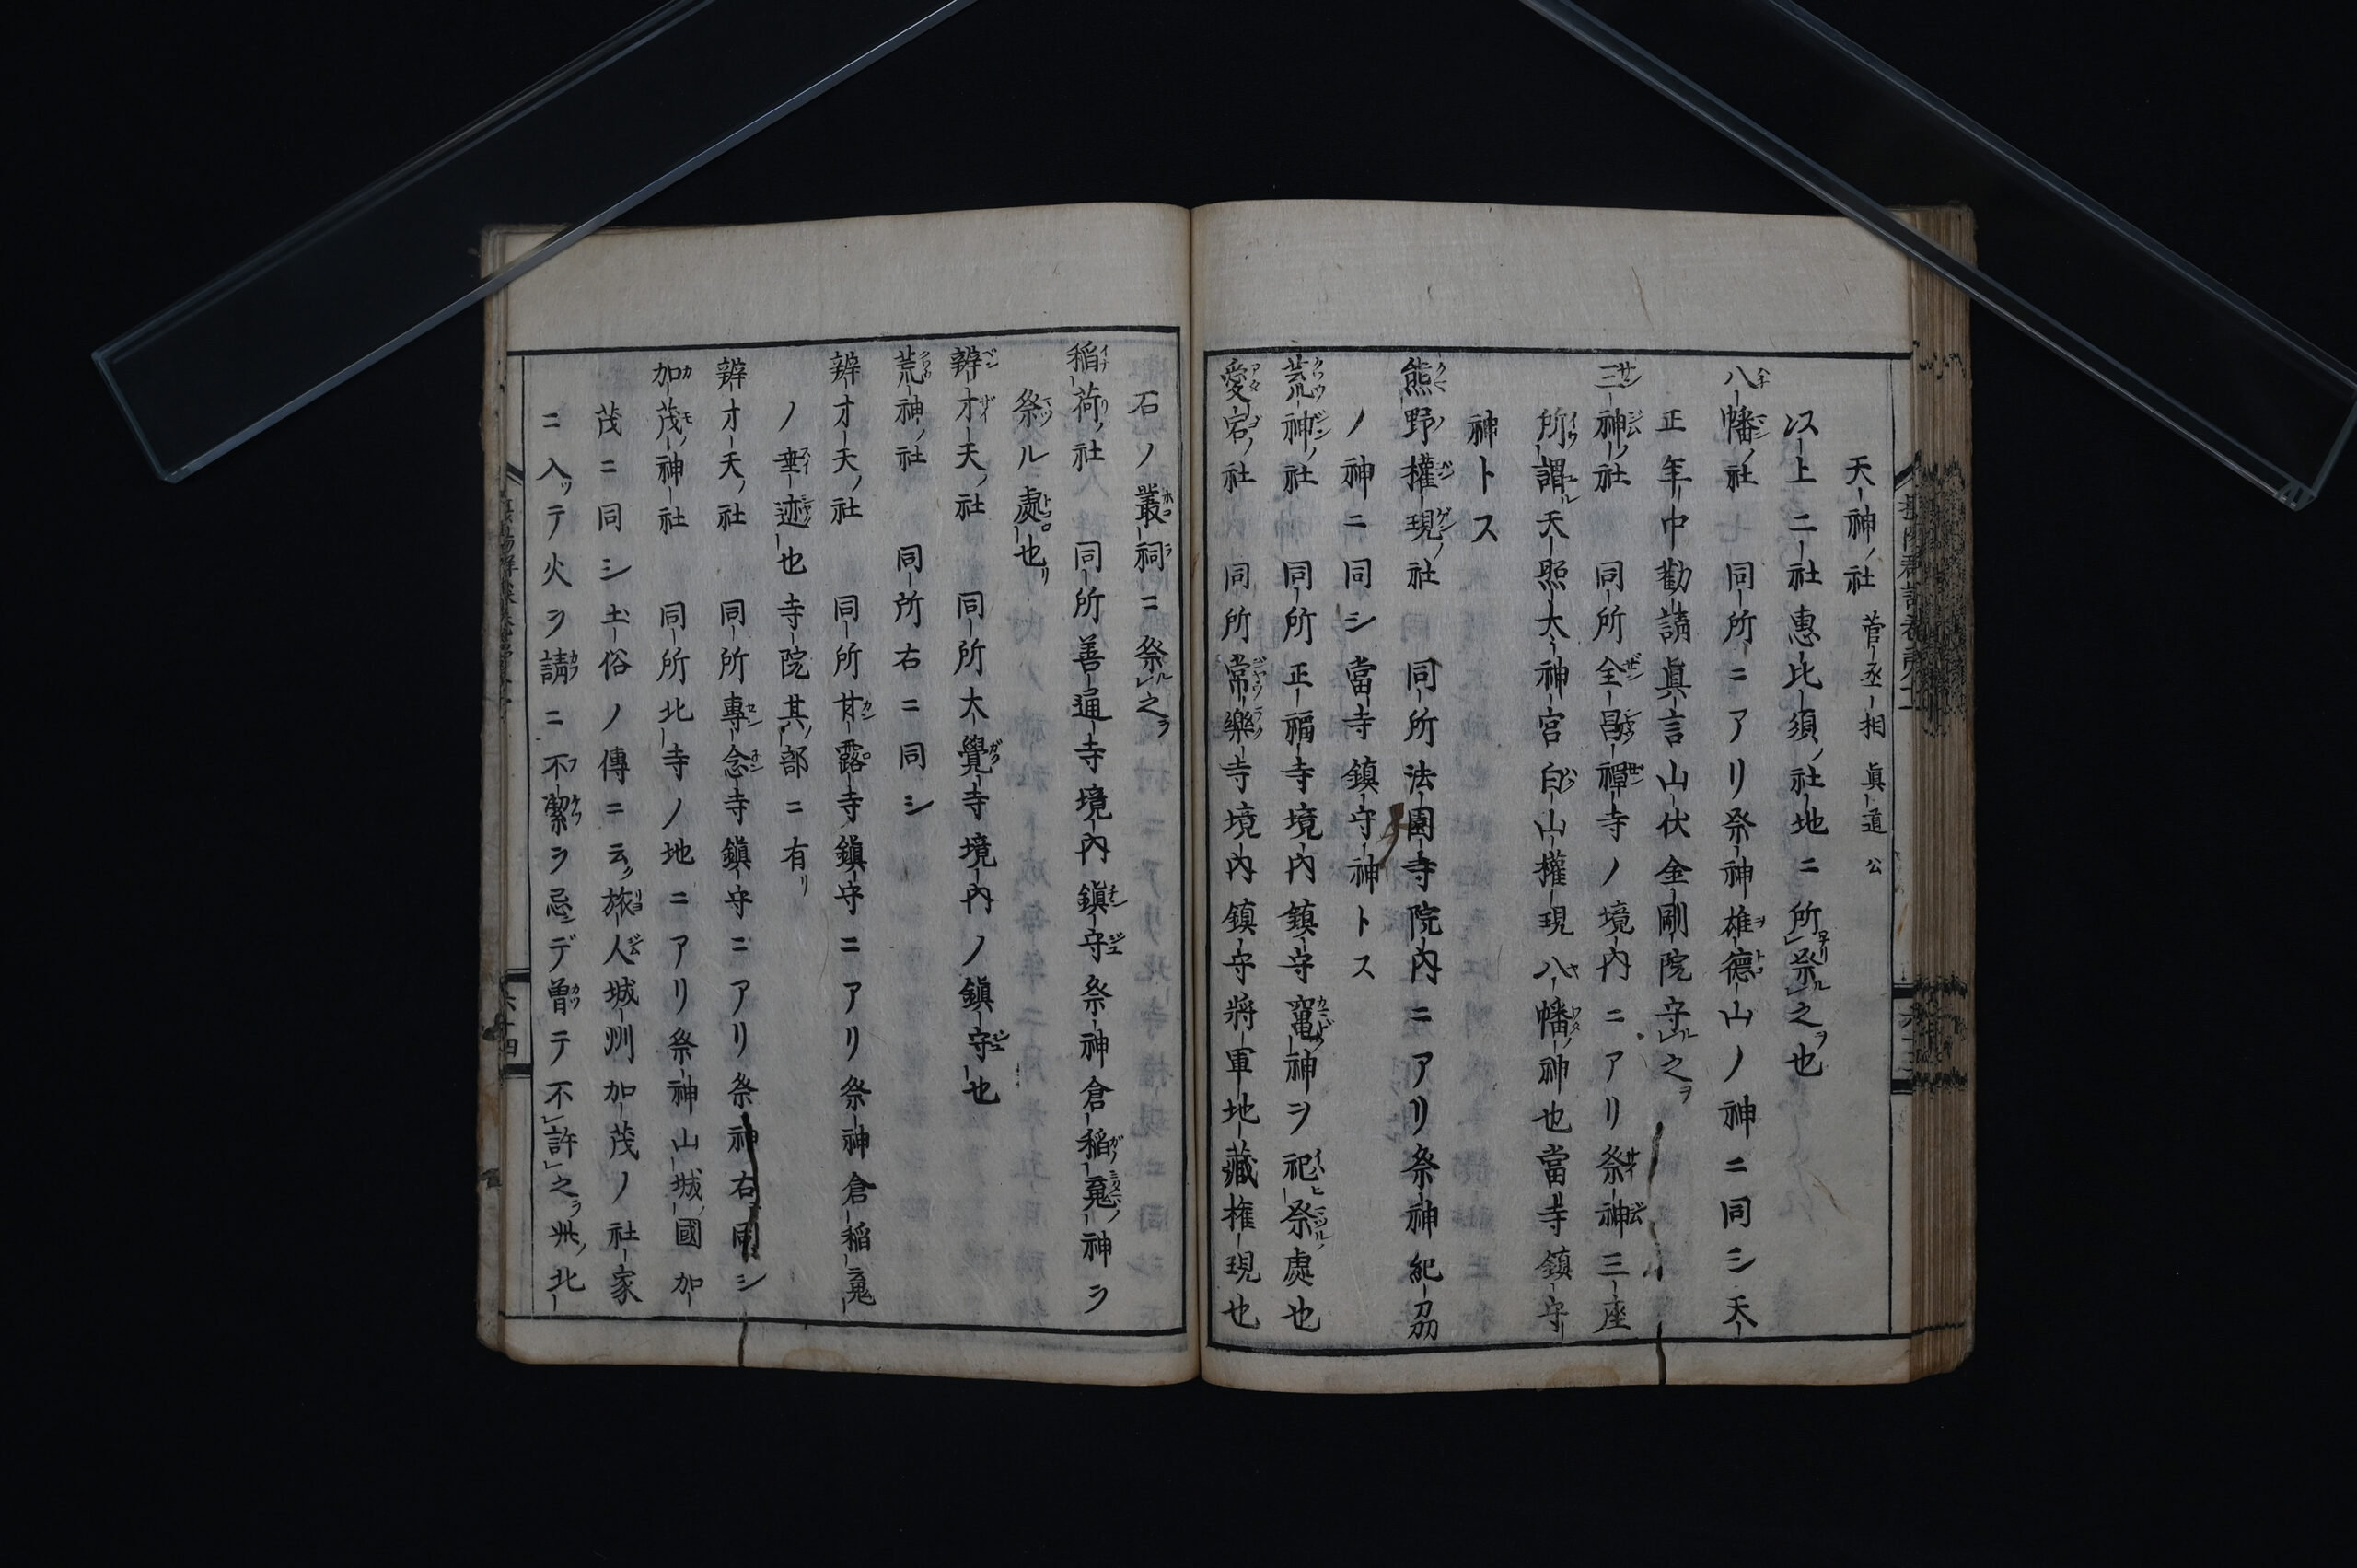 天神ノ社 菅丞相 眞道公
以上二社惠比須ノ社地ニ所祭之ヲ也
八幡ノ社 同所ニアリ祭神雄德山ノ神ニ同シ天
正年中勸請眞言山伏金剛院守ル之ヲ
三神ノ社 同所全昌禪寺ノ境内ニアリ祭神三座
所謂天照大神宮白山權現八幡ノ神也當寺鎮守
神トス
熊野權現ノ社 同所法園寺院内ニアリ祭神紀刕
ノ神ニ同シ當寺鎮守神トス
荒神ノ社 同所正福寺境内鎮守竃神ヲ祀祭ル處也
愛宕ノ社 同所常樂寺境内鎮守將軍地藏権現也
石ノ叢祠ニ祭ル之ヲ
稲荷ノ社 同所善通寺境内鎮守祭神倉稲䰟ノ神ヲ
祭ル處也
辨才天ノ社 同所大覺寺境内ノ鎮守也
荒神ノ社 同所右ニ同シ
辨才天ノ社 同所甘露寺鎮守ニアリ祭神倉稲䰟
ノ垂迹也寺院其ノ部ニ有リ
辨才天ノ社 同所專念寺鎮守ニアリ祭神右ニ同シ
加茂ノ神社 同所北寺ノ地ニアリ祭神山城ノ國加
茂ニ同シ土俗ノ傳ニ云ク旅人城州加茂ノ社家
ニ入ッテ火ヲ請ニ不潔ヲ忌ンデ曽テ不許之ヲ此ノ北
六十四